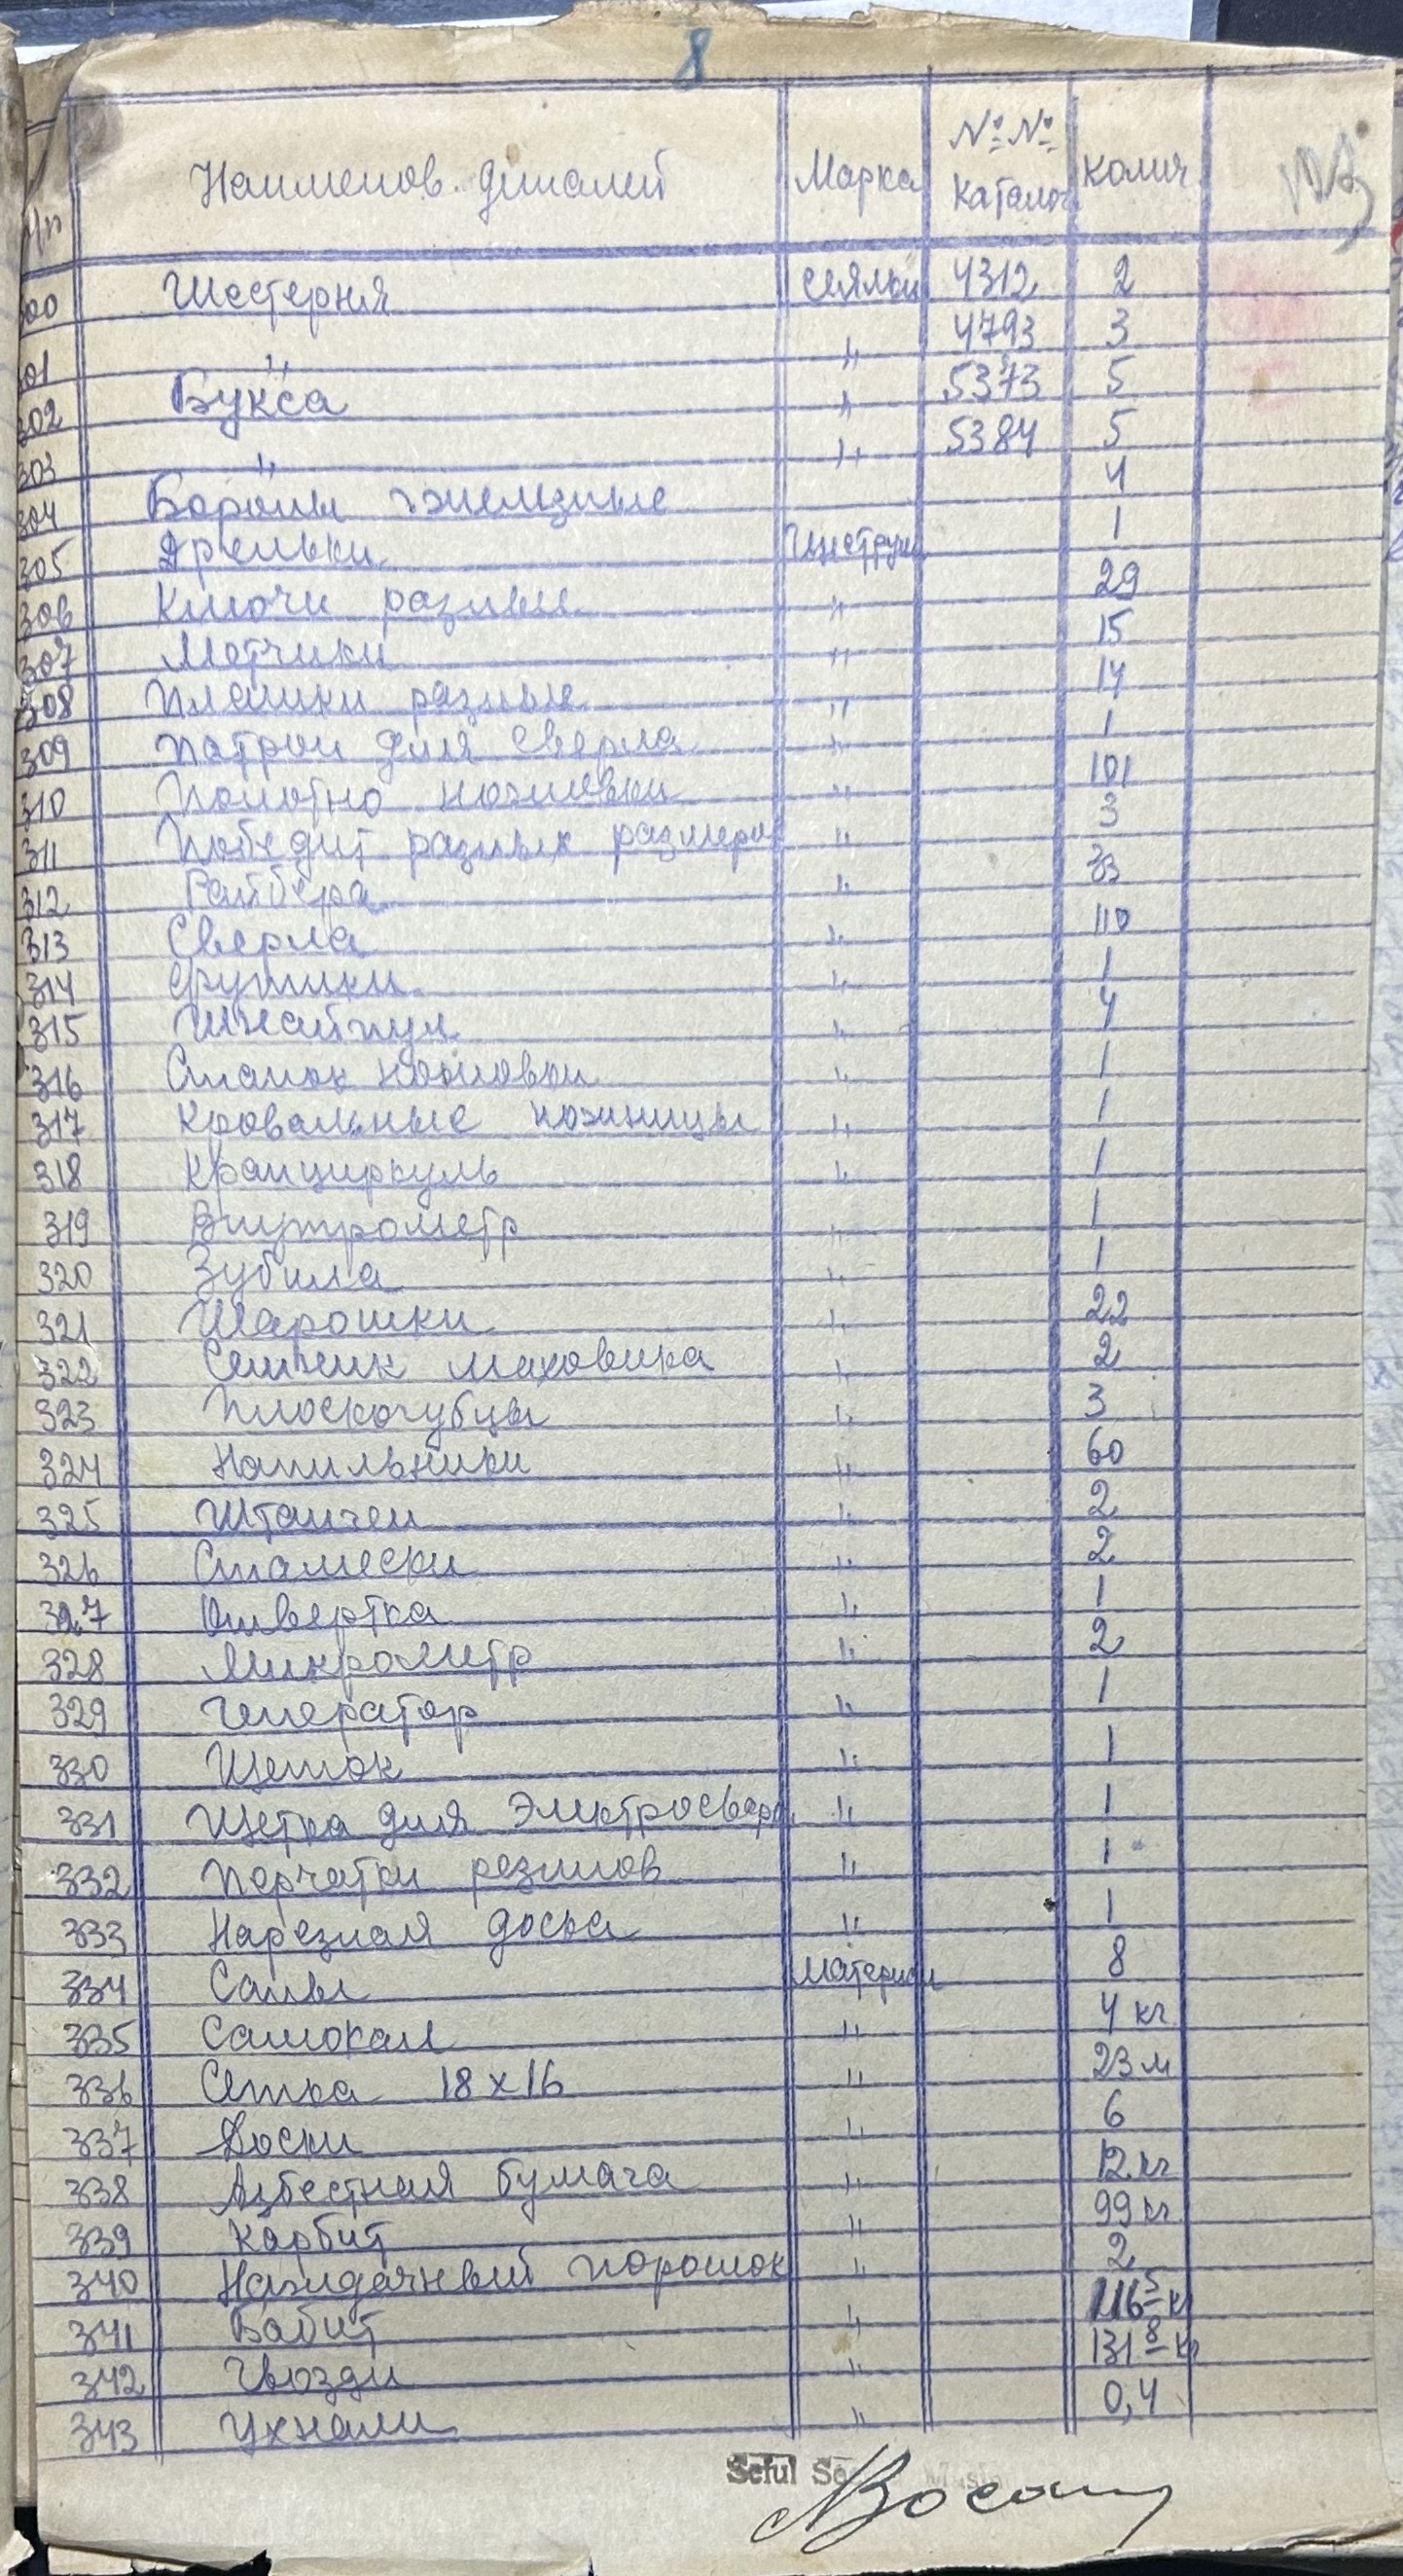 8
/п Наименов. деталей Марка №№ Каталог Колич
300 Шестерня сеялки 4312 2
301 " " 4793 3
302 Букса " 5373 5
303 " " 5384 5
304 Бороны железные 4
305 Дрельки Инструм 1
306 Ключи разные " 29
307 Метчики " 15
308 Плашки разные " 14
309 Патрон для сверла " 1
310 Полотно ножевки " 101
311 Победит разных размеров " 3
312 Райбера " 33
313 Сверла " 110
314 " 1
315 " 4
316 Станок ножовки " 1
317 Кровальные ножницы " 1
318 Кранциркуль " 1
319 Внутрометр " 1
320 Зубила " 1
321 Шарошки " 22
322 маховика " 2
323 Плоскогубцы " 3
324 Напильники " 60
325 Штанген " 2
326 Стамески " 2
327 Отвертка " 1
328 Микрометр " 2
329 Генератор " 1
330 Щеток " 1
331 Щетка для Электросварк " 1
332 Перчатки резинов " 1
333 Нарезная доска " 1
334 Сапы Материал 8
335 Самокал " 4 кг
336 Сетка 18 x 16 " 23 м
337 Доски " 6
338 Азбестная бумага " 12 кг
339 Карбит " 99 кг
340 Наждачный порошок " 2
341 Бабит " 116 5 к
342 Гвозди " 131 8 кг
343 Ухнали " 0,4
Seful Se